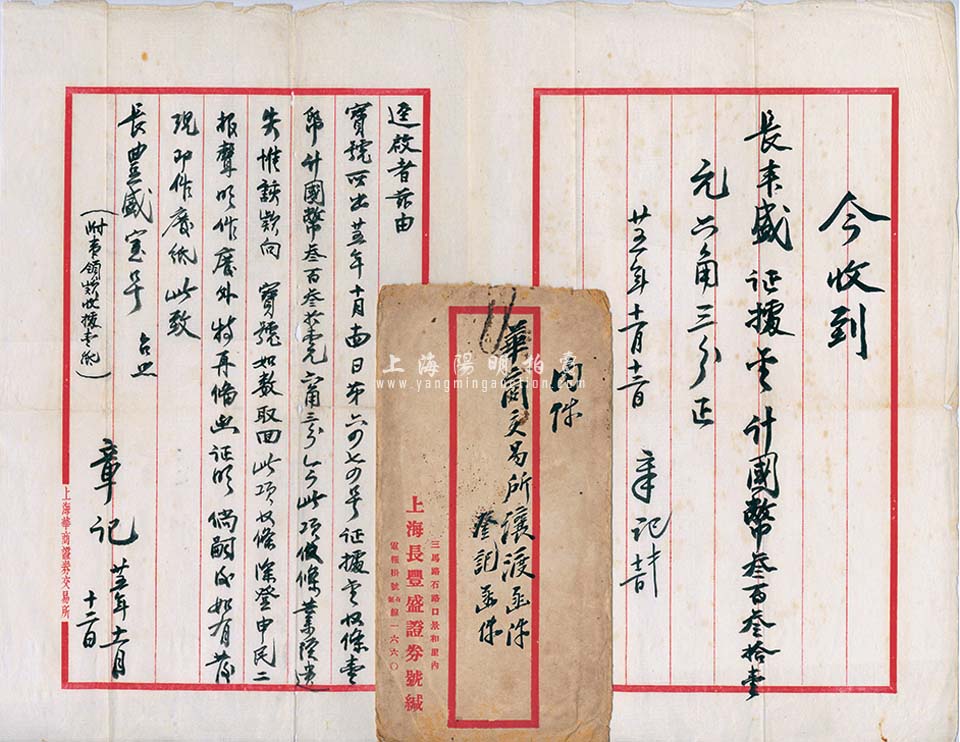 今收到
長丰盛 証據金 计國幣叁百叁拾壹
元六角三分正
廿五年十一月十二日 章记
逕啟者茲由
寶號所出廿五年十月 日第六四七四号証據金收條壹
帋计國幣叁百叁拾壹元六角三分今此項收條業經遺
失惟該款向 寶號如数取回此項收條除登申民二
报聲明作廢外特再備函証明倘嗣後如有發
現即作廢纸此致
長豐盛寶号 台照
(附青領款收據壹紙)
章记 廿五年十一月
十二日
上海華商證券交易所
內件
華商交易所讓渡函件
登记函件
三馬路石路口景和里內
上海長豐盛證券號緘
電報掛號 一六六〇
上海陽明拍賣
www.yangmingauction.com